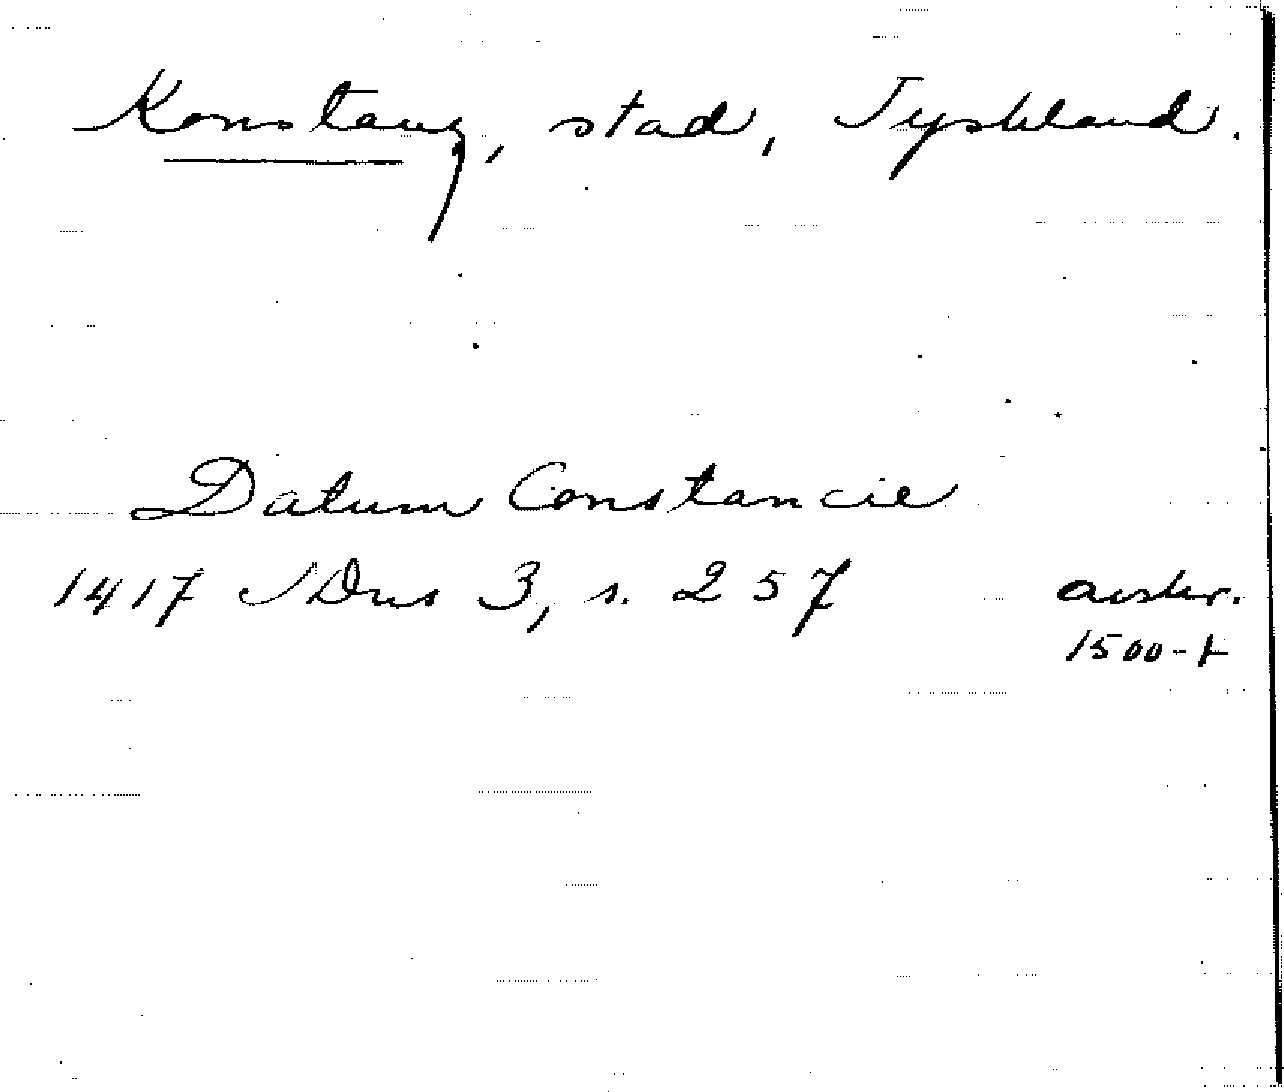 Konstanz, stad, Tyskland.
Datum Constancie
1417 SDns 3, s. 257 avskr.
1500-t